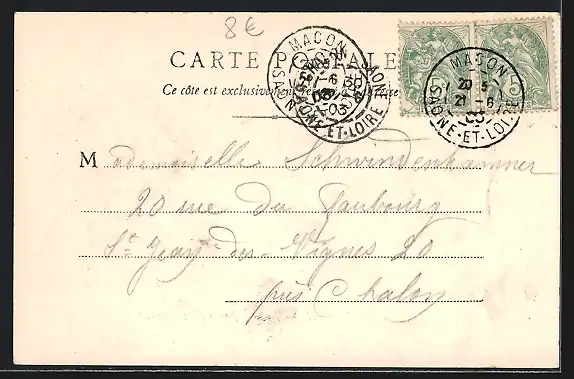 8€
CARTE POSTALE
Ce côte est exclusivement réservé à l'adresse
MACON
SAONE-ET-LOIRE
MACON
20 5
21 -6
03
SAONE-ET-LOIRE
Mademoiselle Schwindenhammer
20 rue du Faubourg
St Jean-des-Vignes 20
près Chalon